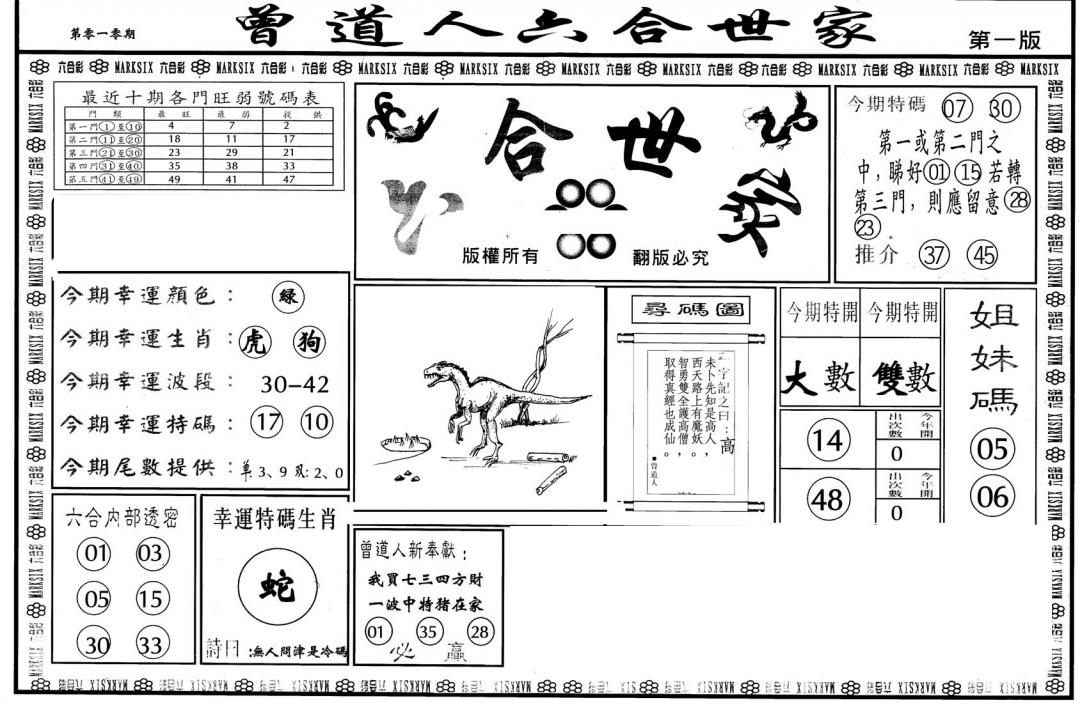 第零一零期
曾道人六合世家
第一版
六合彩 MARKSIX 六合彩 MARKSIX 六合彩 MARKSIX 六合彩 六合彩 MARKSIX 六合彩 MARKSIX 六合彩 MARKSIX 六合彩 MARKSIX 六合彩 MARKSIX 六合彩 MARKSIX
最近十期各門旺弱號碼表
門類 最旺 最弱 提供
第一門①至⑩ 4 7 2
第二門⑪至⑳ 18 11 17
第三門㉑至㉚ 23 29 21
第四門㉛至㊵ 35 38 33
第五門㊶至㊾ 49 41 47
六合世家
版權所有 翻版必究
今期特碼 07 30
第一或第二門之
中,睇好 01 15 若轉
第三門,則應留意 28
23 。
推介 37 45
今期幸運顏色: 緑
今期幸運生肖: 虎 狗
今期幸運波段: 30-42
今期幸運特碼: 17 10
今期尾數提供: 单3、9 双:2、0
尋碼圖
字記之曰:高
未卜先知是高人,
西天路上有魔妖,
智勇雙全護高僧,
取得真經也成仙。
■曾道人
今期特開 今期特開
大數 雙數
14 今年開出次數 0
48 今年開出次數 0
姐妹碼
05
06
六合内部透密
01 03
05 15
30 33
幸運特碼生肖
蛇
詩曰:無人問津是冷碼
曾道人新奉獻:
我買七三四方財
一波中特猪在家
01 35 28
必 贏